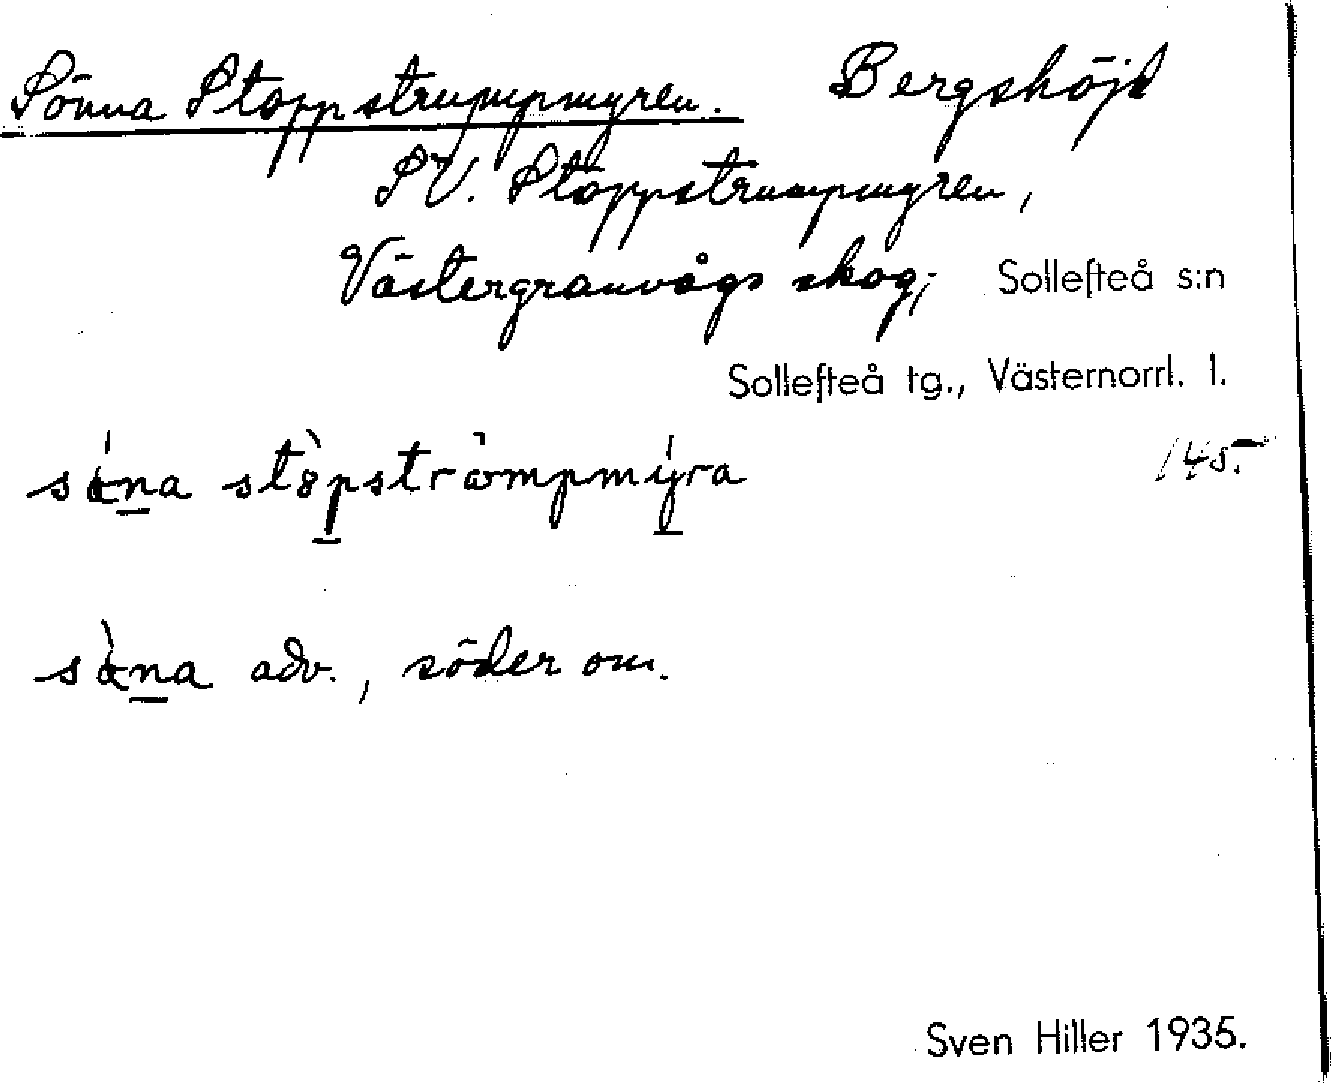 Sönna Stoppstrumpmyren. Bergshöjd
SV. Stoppstrumpmyren,
Västergranvågs skog; Sollefteå s:n
Sollefteå tg., Västernorrl. l.
145.
adv., söder om.
Sven Hiller 1935.